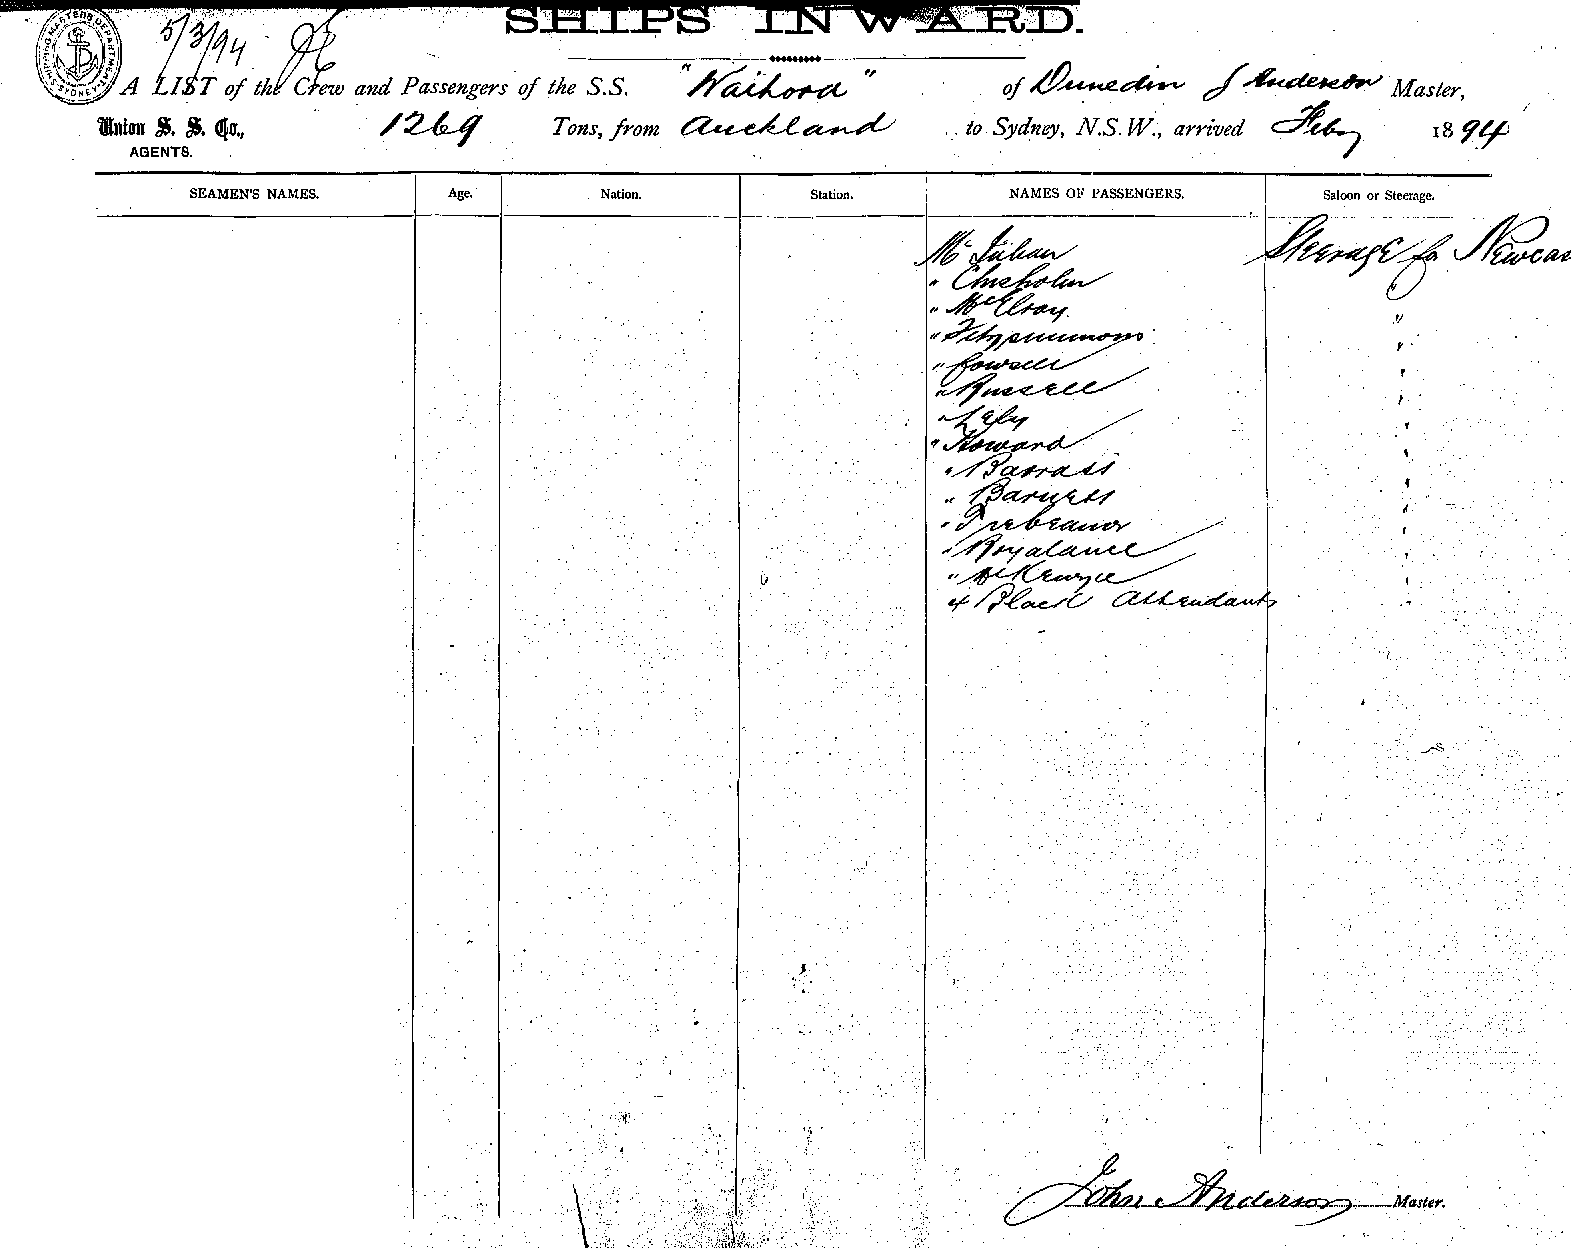 SHIPS INWARD.
5/3/94
A LIST of the Crew and Passengers of the S.S. "Waihora" of Dunedin J Anderson Master,
Union S. S. Co., 1269 Tons, from Auckland to Sydney, N.S.W., arrived Feby 1894
AGENTS.
SEAMEN'S NAMES. Age. Nation. Station. NAMES OF PASSENGERS. Saloon or Steerage.
Mr Julian Steerage for Newcas
" Chisholm "
" McElroy "
" Fitzpsimmons "
" Cowsell "
" Russell "
" Lely "
" Howard "
" Barrass "
" Barness "
" "
" Royalance "
" McKenzie "
4 Black Attendants "
John Anderson Master.